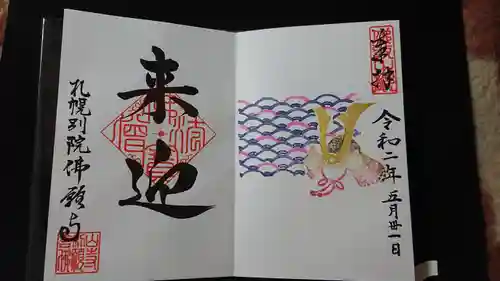 奉拝
令和二年五月卅一日
来迎
札幌別院佛願寺